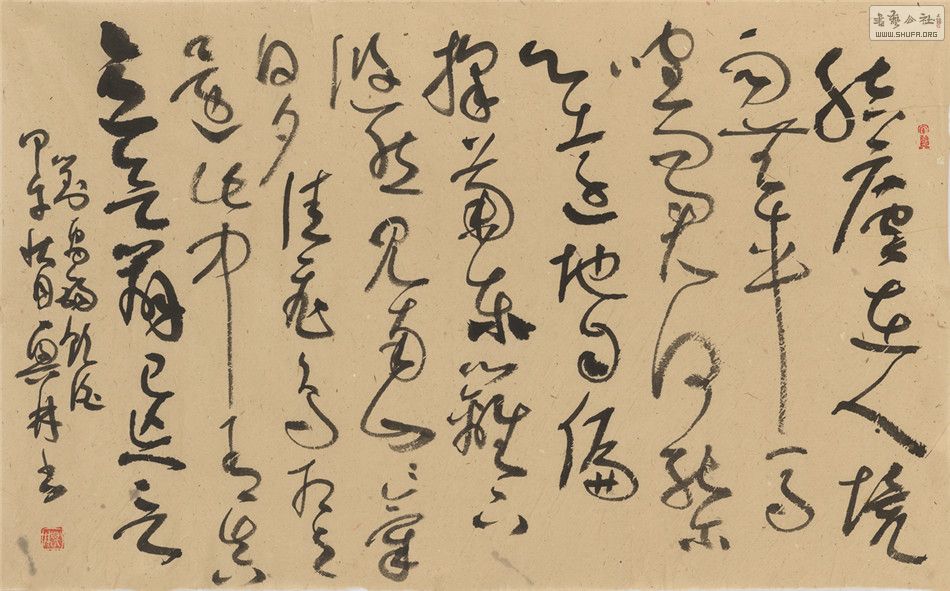 書藝公社
WWW.SHUFA.ORG
結廬在人境
而無車馬
喧問君何能爾
心遠地自偏
採菊東籬下
悠然見南山〻氣
日夕佳飛鳥相與
還此中有真
意欲辨已忘言
飲酒
甲午秋月興林書